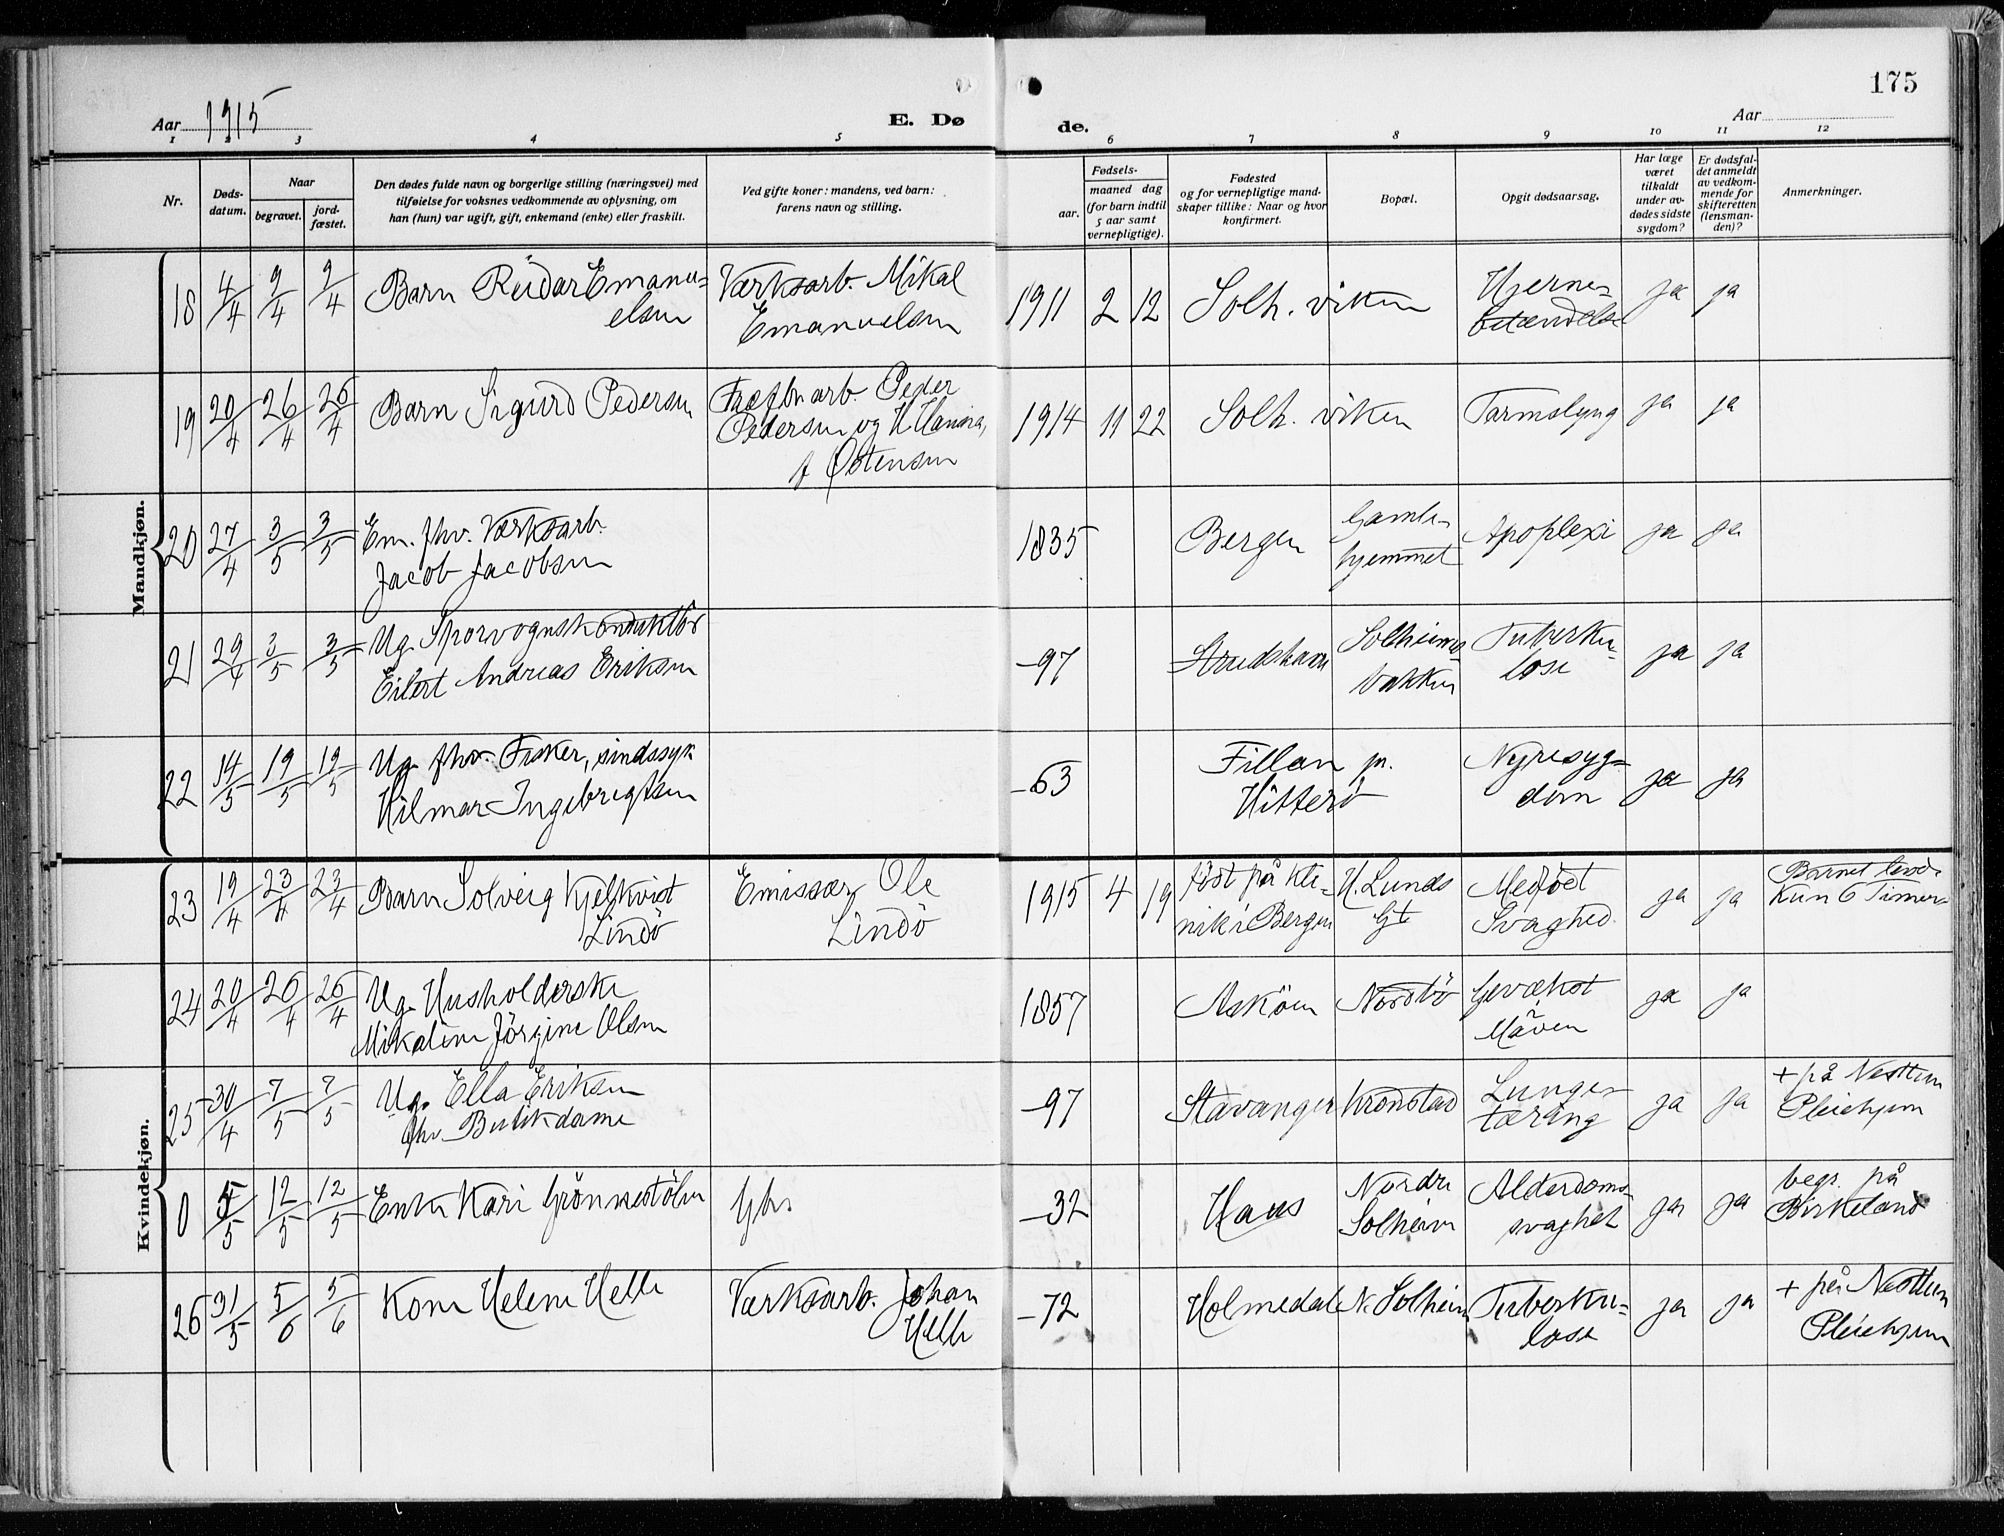 175
Aar 1915
E. Dø
de.
Aar
1 2 3 4 5 6 7 8 9 10 11 12
Nr.
Døds-
datum.
Naar
begravet.
jord-
fæstet.
Den dødes fulde navn og borgerlige stilling (næringsvei) med
tilføielse for voksnes vedkommende av oplysning, om
han (hun) var ugift, gift, enkemand (enke) eller fraskilt.
Ved gifte koner: mandens, ved barn:
farens navn og stilling.
Fødsels-
aar.
maaned dag
(for barn indtil
5 aar samt
vernepligtige).
Fødested
og for vernepligtige mand-
skaper tillike: Naar og hvor
konfirmert.
Bopæl.
Opgit dødsaarsag.
Har læge
været
tilkaldt
under av-
dødes sidste
sygdom?
Er dødsfal-
det anmeldt
av vedkom-
mende for
skifteretten
(lensman-
den)?
Anmerkninger.
Mandkjøn.
18 4/4 9/4 9/4 Barn Reidar Emanu=
elsen
Værksarb. Mikal
Emanuelsen
1911 2 12 Solh. viken
Hjerne=
betændelse
ja ja
19 20/4 26/4 26/4 Barn Sigurd Pedersen
arb. Peder
Pedersen og H. Hanna,
f Østensen
1914 11 22 Solh. viken Tarmslyng ja ja
20 27/4 3/5 3/5 Em. fhv. Værksarb.
Jacob Jacobsen
1835 Bergen Gamle-
hjemmet
Apoplexi ja ja
21 29/4 3/5 3/5 Ug. Sporvognskonduktör
Eilert Andreas Eriksen
-97 Solheims
bakken
Tuberku=
lose
ja ja
22 14/5 19/5 19/5 Ug. fhv. Fisker, sindssyk
Hilmar Ingebrigtsen
-63 Fillan pr.
Hitterö
Nyresyg=
dom
ja ja
Kvindekjøn.
23 19/4 23/4 23/4 Barn Solveig Kjelkvist
Lindö
Emissær Ole
Lindö
1915 4 19 född på kli=
nik i Bergen
H. Lunds
Gt
Medfödt
Svaghed.
ja ja Barnet levde
Kun 6 Timer
24 20/4 26/4 26/4 Ug. Husholderske
Mikaline Jörgine Olsen
1857 Asköen Nordbö Gevækst
i Maven
ja ja
25 30/4 7/5 7/5 Ug. Ella Eriksen
fhv. Butikdame
-97 Stavanger Kronstad Lunge=
tæring
ja ja + på Nesttun
Pleiehjem
0 5/5 12/5 12/5 Enke Kari Grönnestölen Gbr.
-32 Haus Nordre
Solheim
Alderdoms-
svaghet
ja ja begr. på
Birkeland
26 31/5 5/6 5/6 Kone Helene Helle Værksarb. Johan
Helle
-72 Holmedal N. Solheim Tuberku=
lose
ja ja + på Nesttun
Pleiehjem